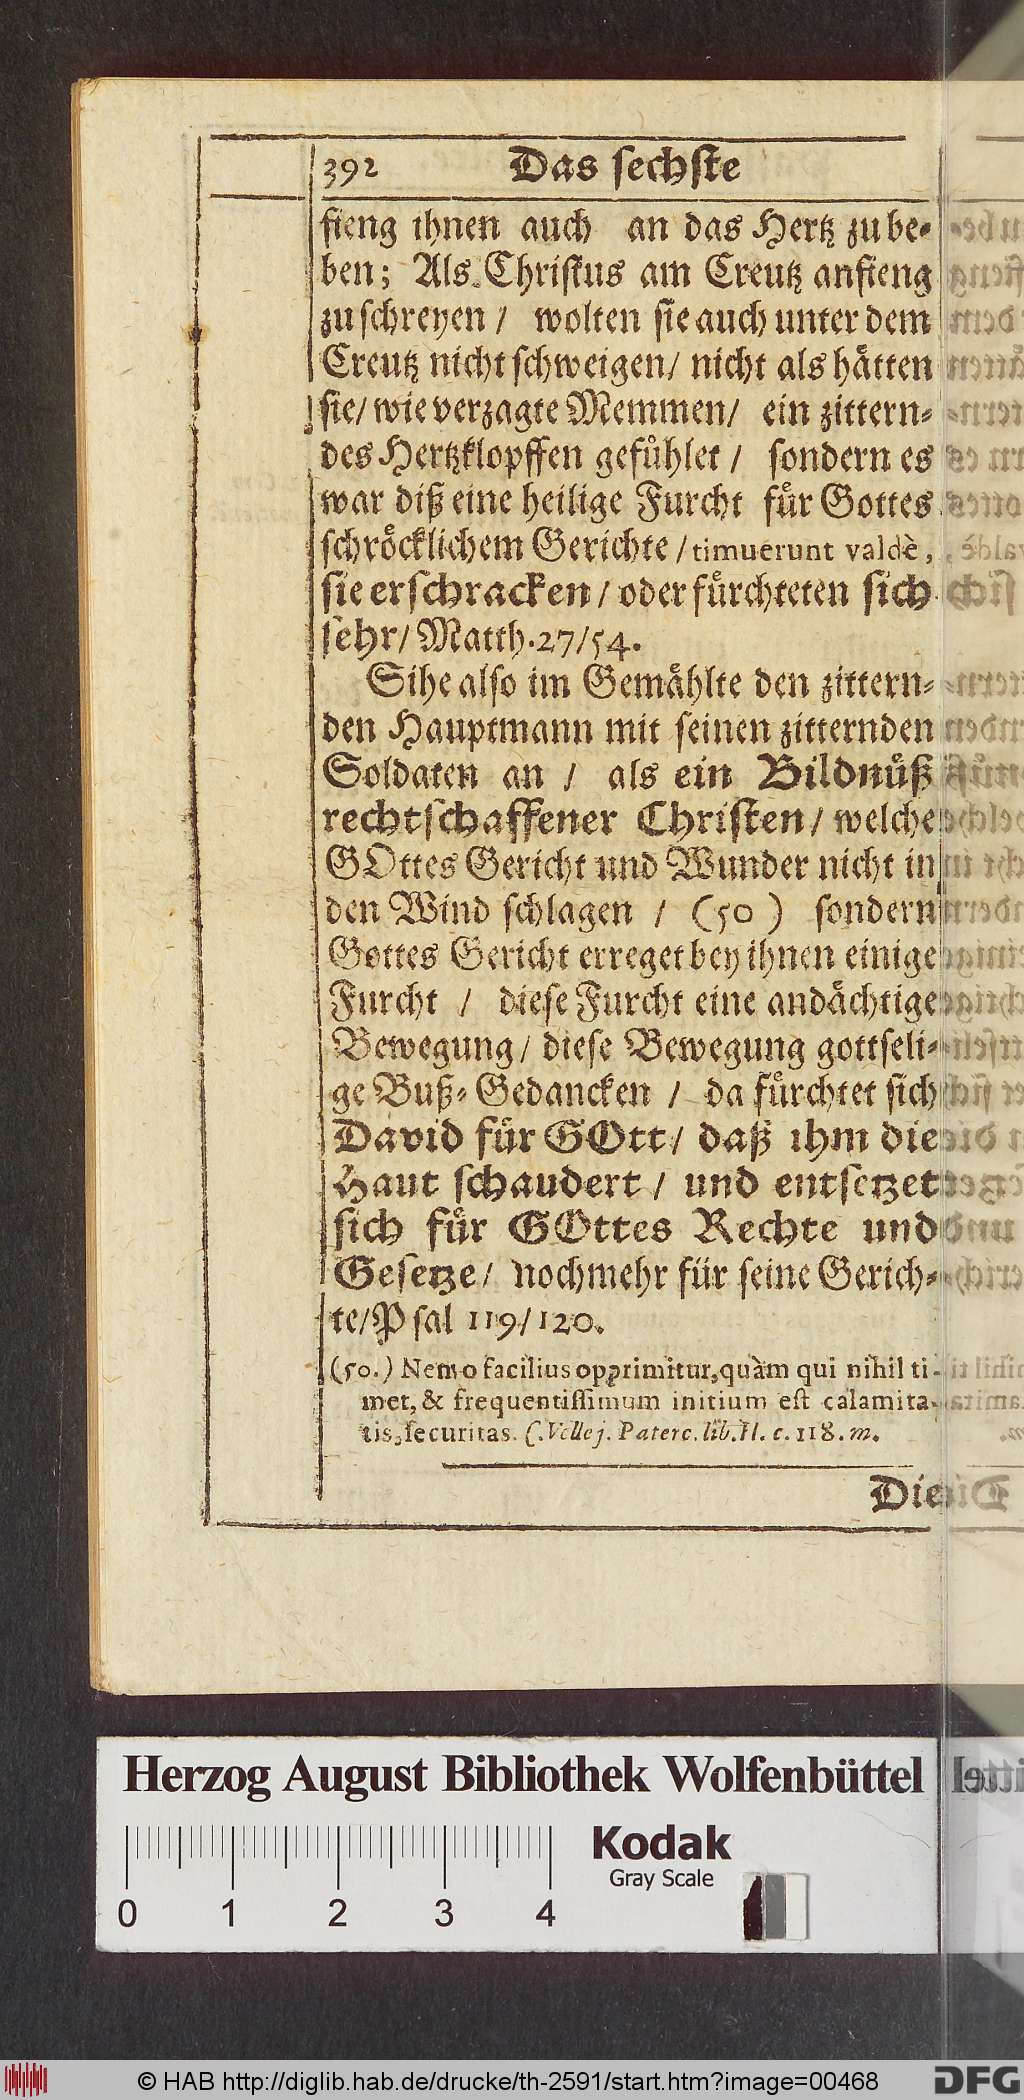 392 Das sechste
fieng ihnen auch an das Hertz zu be-
ben; Als Christus am Creutz anfieng
zu schreyen / wolten sie auch unter dem
Creutz nicht schweigen / nicht als hätten
sie / wie verzagte Memmen / ein zittern-
des Hertzklopffen gefühlet / sondern es
war diß eine heilige Furcht für Gottes
schröcklichem Gerichte / timuerunt valdè,
sie erschracken / oder fürchteten sich
sehr / Matth. 27/54.
Sihe also im Gemählte den zittern-
den Hauptmann mit seinen zitternden
Soldaten an / als ein Bildnüß
rechtschaffener Christen / welche
GOttes Gericht und Wunder nicht in
den Wind schlagen / (50) sondern
Gottes Gericht erreget bey ihnen einige
Furcht / diese Furcht eine andächtige
Bewegung / diese Bewegung gottseli-
ge Buß-Gedancken / da fürchtet sich
David für GOtt / daß ihm die
Haut schaudert / und entsetzet
sich für GOttes Rechte und
Gesetze / nochmehr für seine Gerich-
te / Psal 119/120.
(50.) Nemo facilius opprimitur, quàm qui nihil ti-
met, & frequentissimum initium est calamita-
tis, securitas. C. Vellej. Paterc. lib. II. c. 118. m.
Die
Herzog August Bibliothek Wolfenbüttel
Kodak
Gray Scale
0 1 2 3 4
© HAB http://diglib.hab.de/drucke/th-2591/start.htm?image=00468
DFG